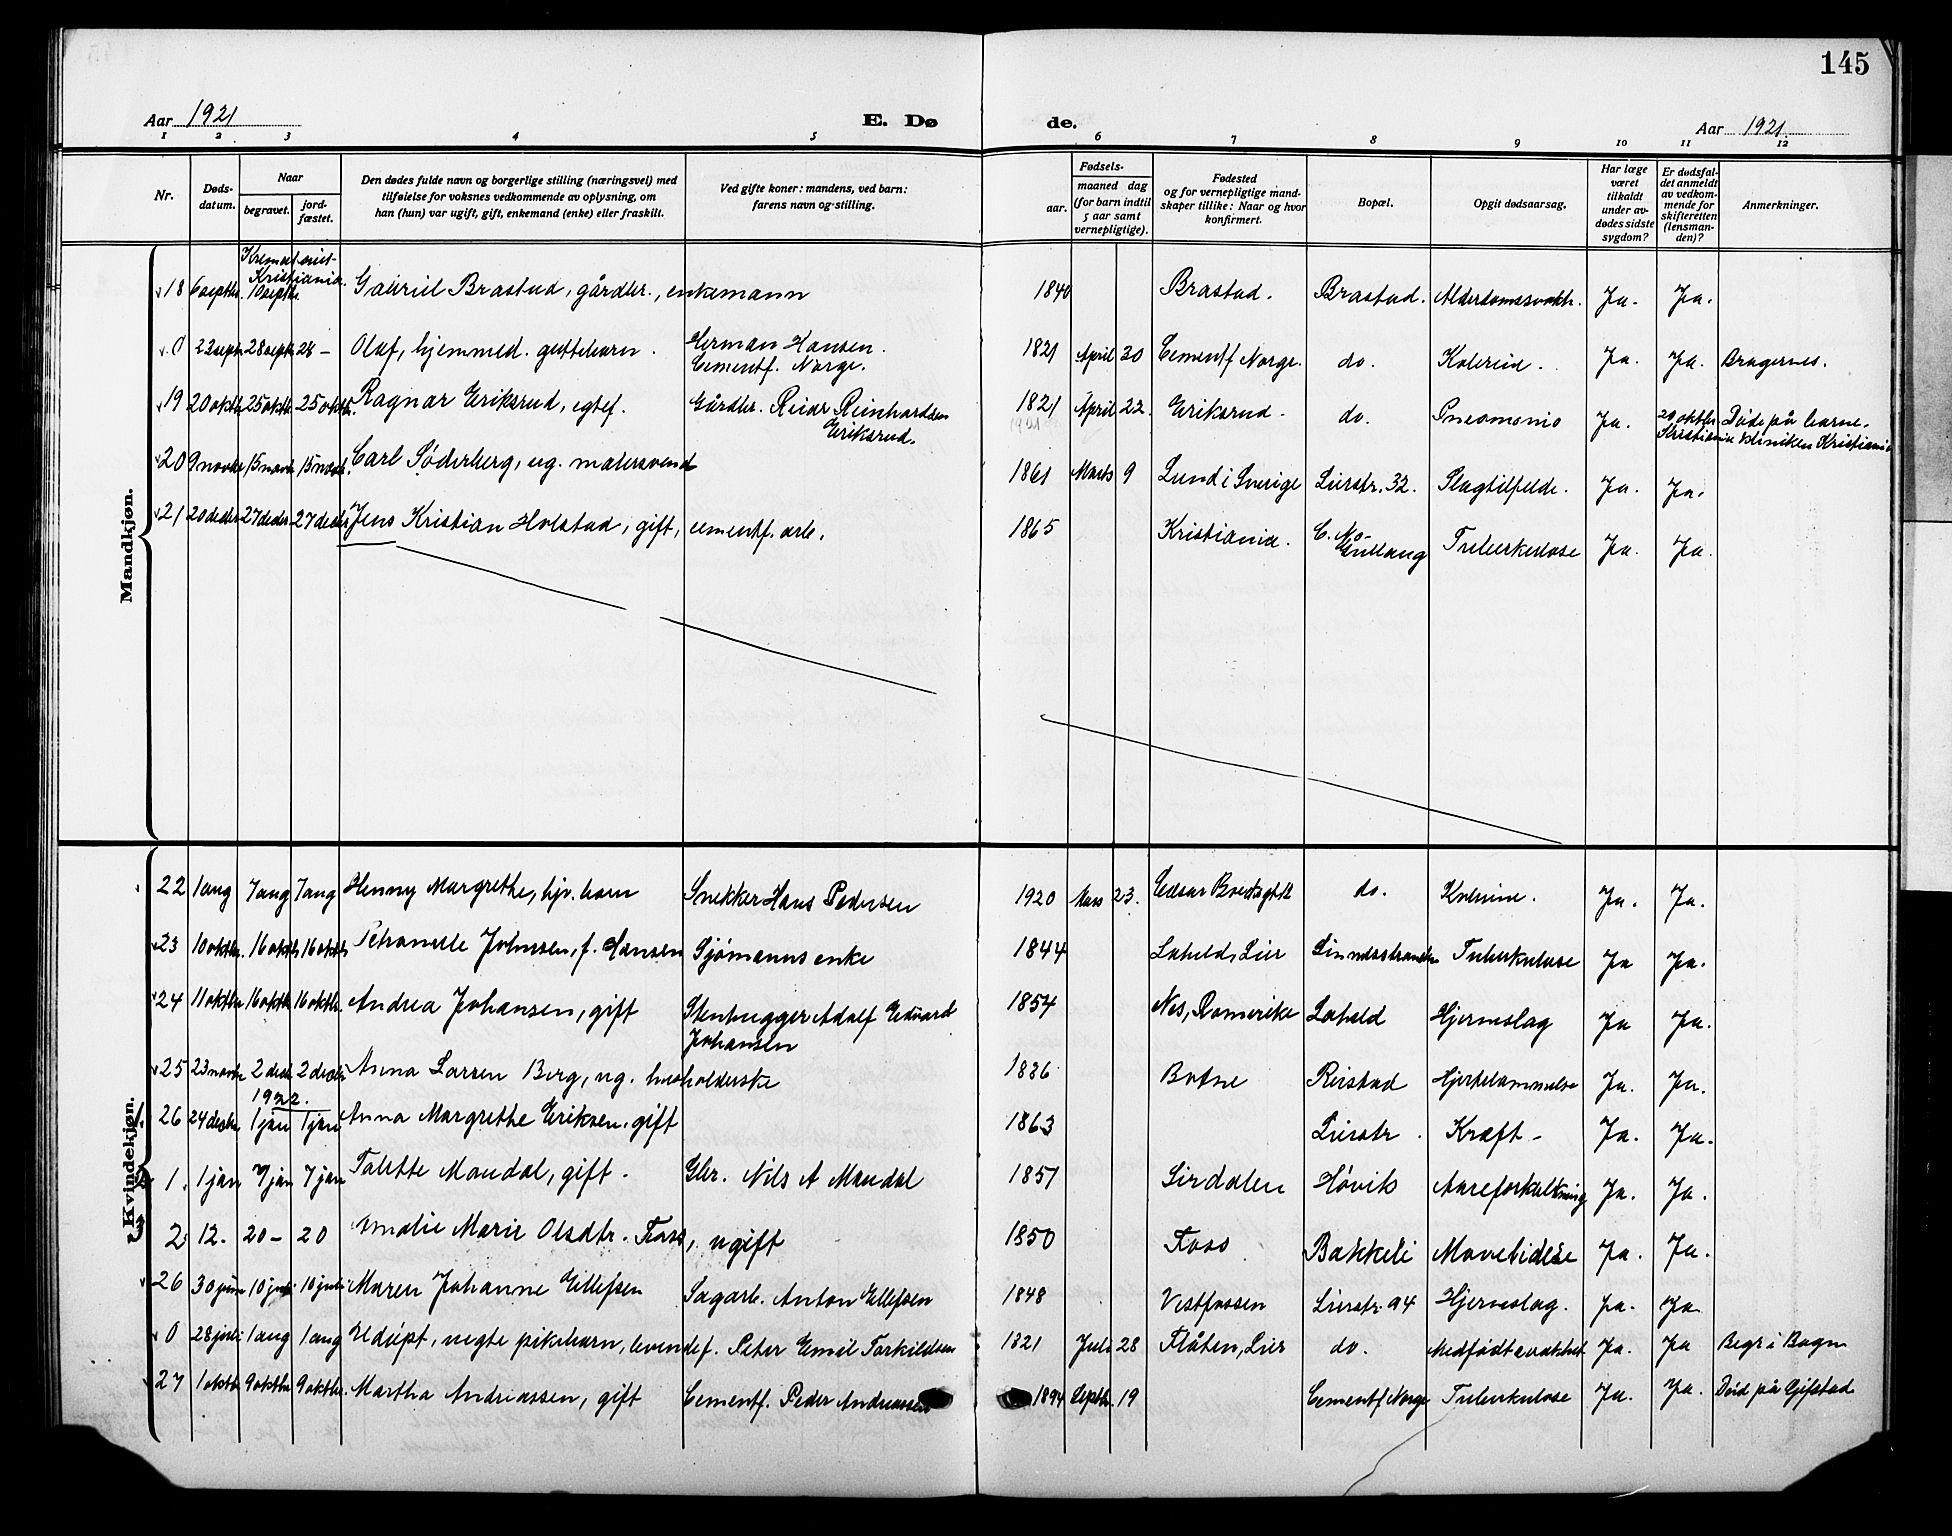 145
Aar 1921
E. Dø
de.
Aar 1921
1 2 3 4 5 6 7 8 9 10 11 12
Nr.
Døds-
datum.
Naar
begravet.
jord-
fæstet.
Den dødes fulde navn og borgerlige stilling (næringsvei) med
tilføielse for voksnes vedkommende av oplysning, om
han (hun) var ugift, gift, enkemand (enke) eller fraskilt.
Ved gifte koner: mandens, ved barn:
farens navn og stilling.
Fødsels-
aar.
maaned dag
(for barn indtil
5 aar samt
vernepligtige).
Fødested
og for vernepligtige mand-
skaper tillike: Naar og hvor
konfirmert.
Bopæl.
Opgit dødsaarsag.
Har læge
været
tilkaldt
under av-
dødes sidste
sygdom?
Er dødsfal-
det anmeldt
av vedkom-
mende for
skifteretten
(lensman-
den)?
Anmerkninger.
Mandkjøn.
Krematoriet
Kristiania.
18 6septbr. 10septbr. Gabriel Brastad, gårdbr., enkemann 1840 Brastad. Brastad. Alderdomssvakh. Ja. Ja.
0 22septb 28septb 28 – Olaf, hjemmed. guttebarn. Herman Hansen. 1821 April 30 Cementf Norge. do. Kolerine. Ja. Ja. Bragernes.
Cementf. Norge.
19 20oktbr 25oktb. 25oktb. Ragnar Eriksrud, egtef. Gårdbr. Reier Reinhardsen 1821 April 22. Eriksrud. do. Pneomonio Ja. 20 oktbr. Døde på barne-
Eriksrud. 1921 Kristiania kliniken Kristiania
20 9novbr 15novb 15novb. Carl Søderberg, ug. malersvend 1861 Marts 9 Lund i Sverige Lierstr. 32. Slagtilfelde. Ja. Ja.
21 20decbr 27decbr 27decbr Jens Kristian Holstad, gift, cementf. arb. 1865 Kristiania. C. No- Tuberkulose Ja. Ja.
Gullaug
Kvindekjøn.
22 1aug 7aug 7aug Henny Margrethe, hjv. barn Snekker Hans Pedersen 1920 Mars 23. do. Kolerine. Ja. Ja.
23 10oktbr. 16oktb 16oktb Petronelle Johnsen, f. Hansen Sjømanns enke 1844 Laheld, Lier Linnesstranden Tuberkulose Ja Ja.
24 11oktbr 16oktb 16oktbr. Andrea Johansen, gift Stenhugger Adolf Edvard 1854 Nes, Romerike Laheld Hjerneslag Ja Ja.
Johansen
25 23novbr 2decb 2decbr Anna Larsen Berg, ug. husholderske 1836 Botne Reistad Hjertelammelse Ja. Ja.
1922.
26 24decbr 1jan 1jan Anna Margrethe Eriksen, gift 1863 Lierstr. Kræft – Ja. Ja.
1. 1jan 7jan 7jan Tolette Mandal, gift. Gbr. Nils A Mandal 1851 Sirdalen Høvik Aareforkalkning Ja. Ja.
3 2 12. 20 – 20 Amalie Marie Olsdtr. Foss, ugift 1850 Foss Bakkeli Mavelidelse Ja. Ja.
26 30juni 10juli 10juli Maren Johanne Ellefsen Sagarb. Anton Ellefsen 1848 Vestfossen Lierstr. 94 Hjerneslag. Ja. Ja
0 28juli 1aug 1aug Udøpt, uegte pikebarn, levende f. Peter Emil Torkildsen 1821 Juli 28 Flåten, Lier do. Medfødt svakhet Ja. Ja Begr i Bagn
27 1oktbr 9oktbr 9oktbr. Martha Andreassen, gift Cementf. Peder Andreassen 1894 Septbr. 19 Cementf Norge Tuberkulose Ja. Ja. Død på Gjifstad